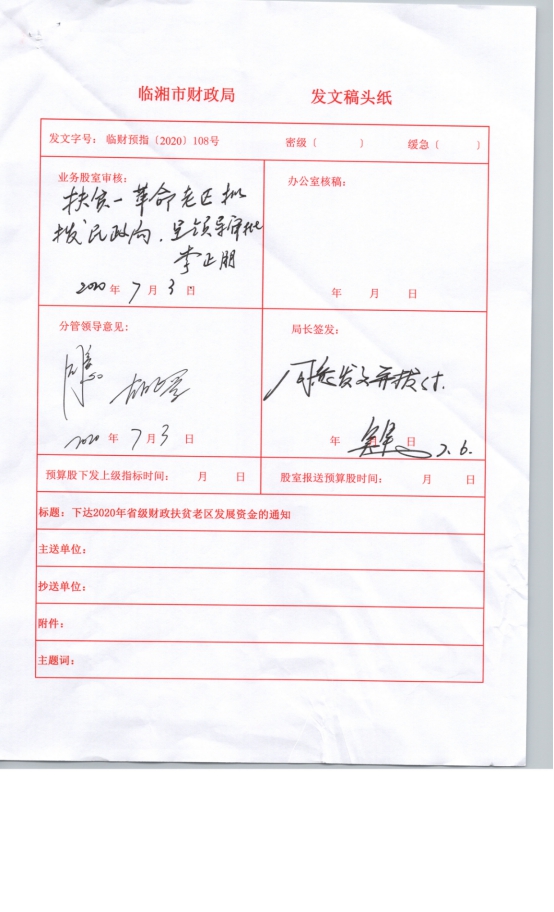 临湘市财政局 发文稿头纸
发文字号：临财预指〔2020〕108号 密级〔 〕 缓急〔 〕
业务股室审核：
扶贫一革命老区
拨民政局．呈领导审批
李正朋
2020年7月3日
办公室核稿：
年 月 日
分管领导意见：
同意
2020年7月3日
局长签发：
同意发文并拨付．
年 月 日
7.6.
预算股下发上级指标时间： 月 日 股室报送预算股时间： 月 日
标题：下达2020年省级财政扶贫老区发展资金的通知
主送单位：
抄送单位：
附件：
主题词：